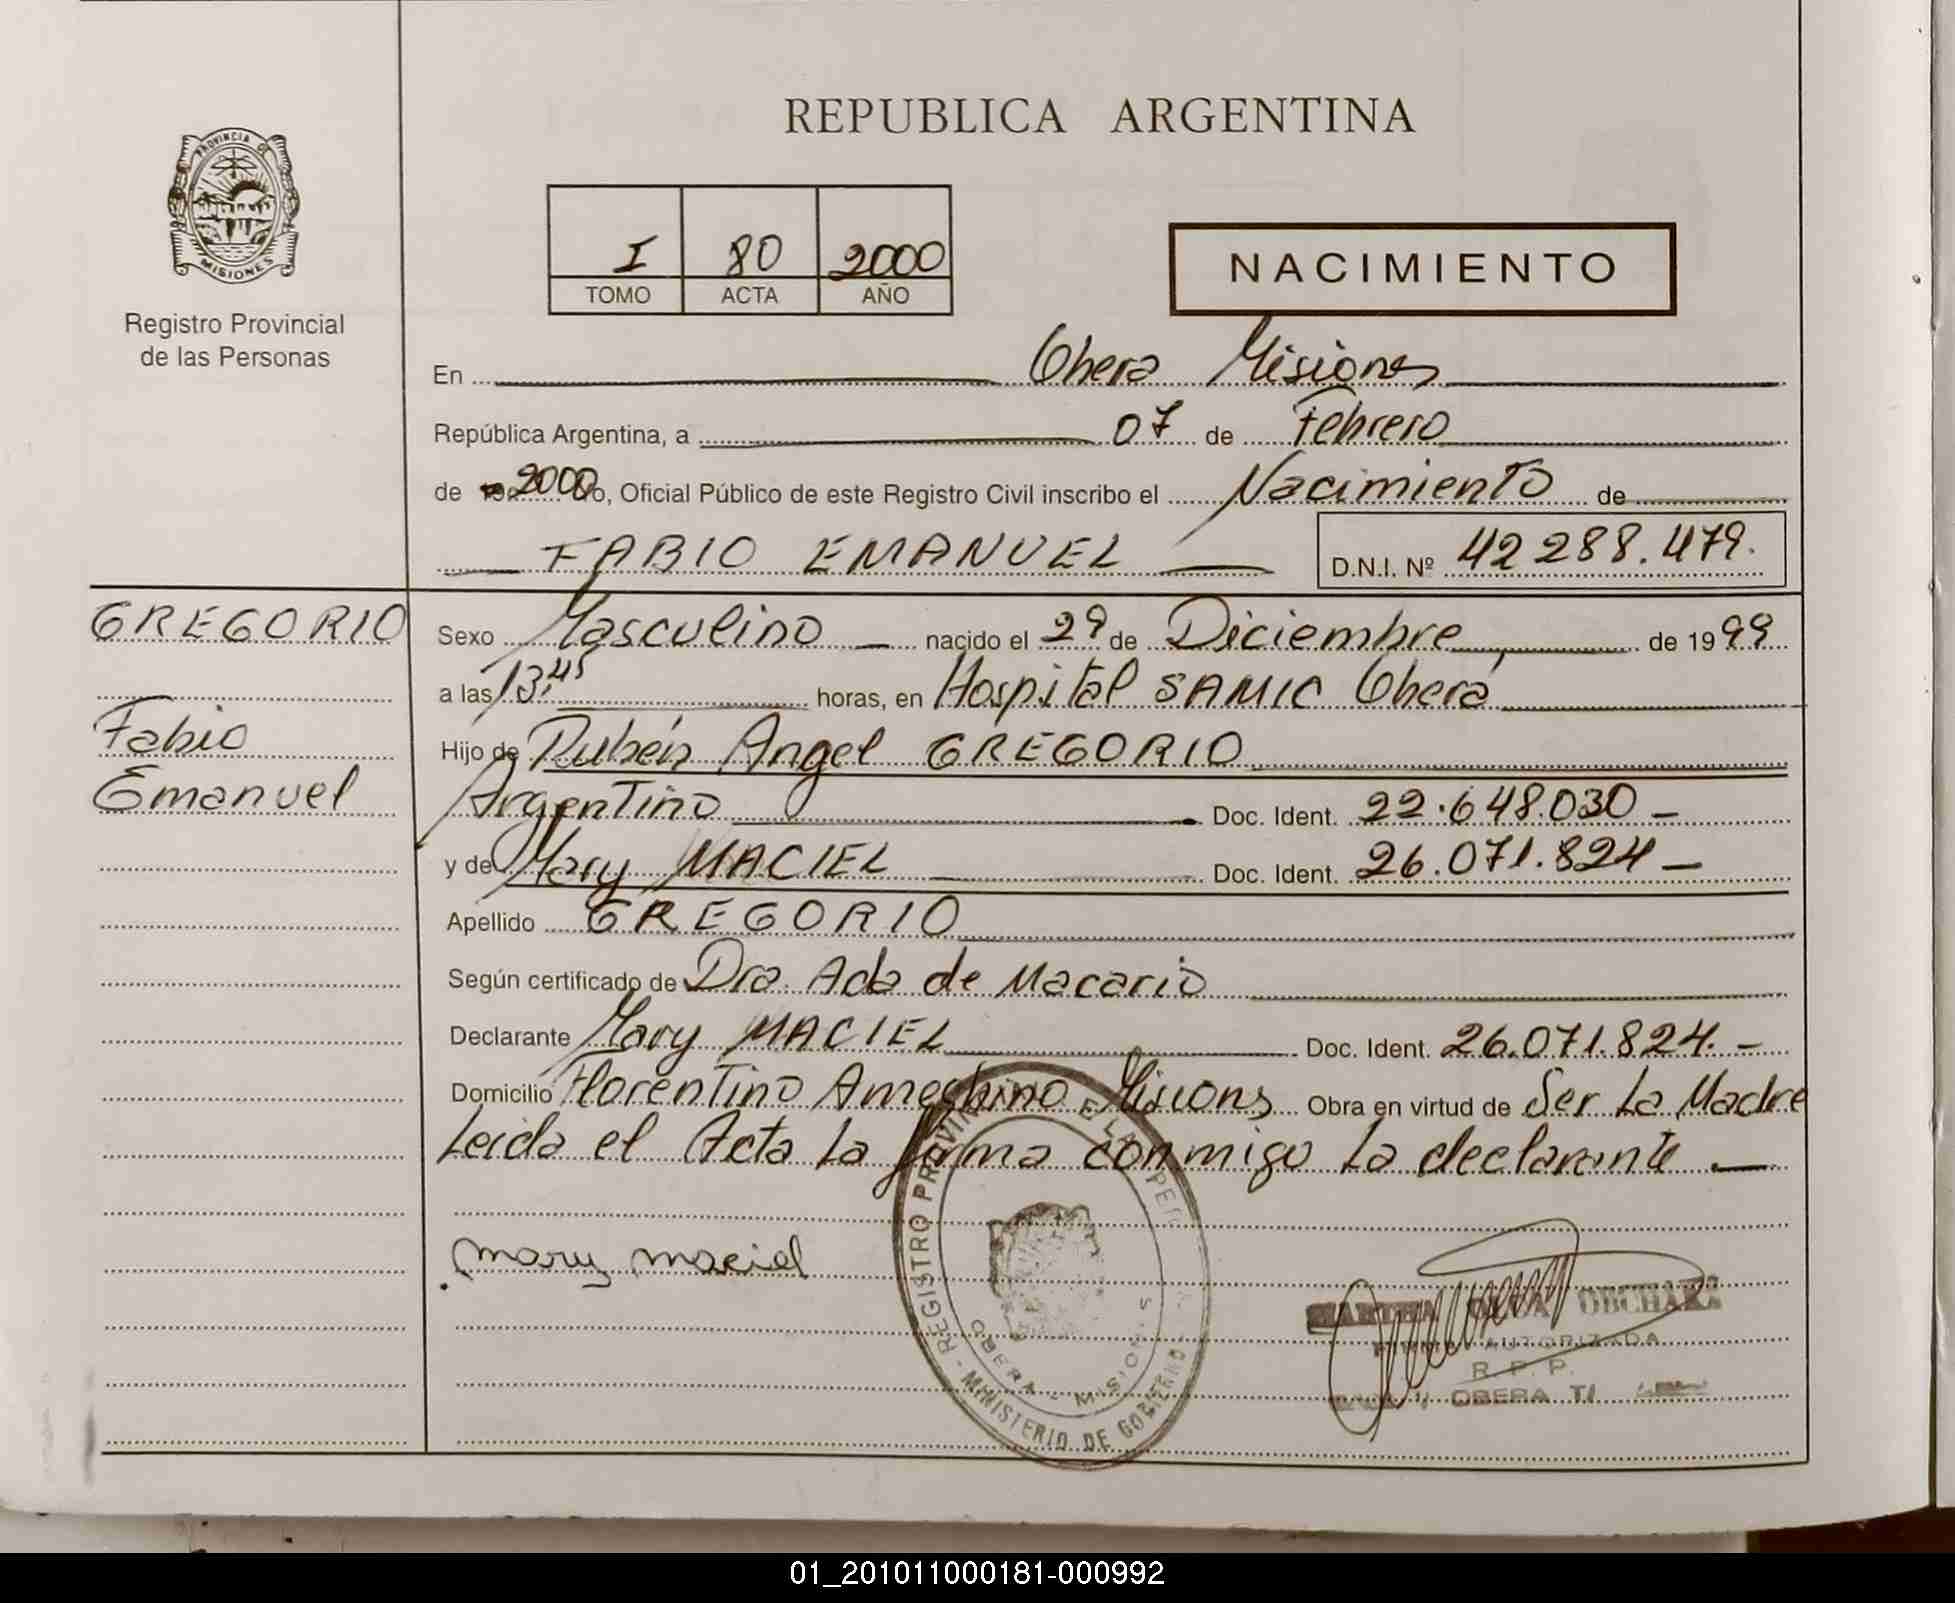 REPUBLICA ARGENTINA
PROVINCIA DE
MISIONES
Registro Provincial
de las Personas
I 80 2000
TOMO ACTA AÑO
NACIMIENTO
En Obera Misiones
República Argentina, a 07 de Febrero
de 2000 yo, Oficial Público de este Registro Civil inscribo el Nacimiento de
FABIO EMANUEL D.N.I. Nº 42 288.479.
GREGORIO
Fabio
Emanuel
Sexo Masculino nacido el 29 de Diciembre de 1999
a las 13,45 horas, en Hospital SAMIC Oberá
Hijo de Rubén Angel GREGORIO
Argentino Doc. Ident. 22.648.030
y de Mary MACIEL Doc. Ident. 26.071.824
Apellido GREGORIO
Según certificado de Dra. Ada de Macario
Declarante Mary MACIEL Doc. Ident. 26.071.824.
Domicilio Florentino Ameghino Misions Obra en virtud de Ser La Madre
Leida el Acta La firma conmigo La declarante
mary maciel
REGISTRO PROVIN E LA PER
OBERA - MISIONES
MINISTERIO DE GOBIERNO
MARTHA OLGA OBCHAKA
FIRMA AUTORIZADA
R.P.P.
OBERA
01_201011000181-000992